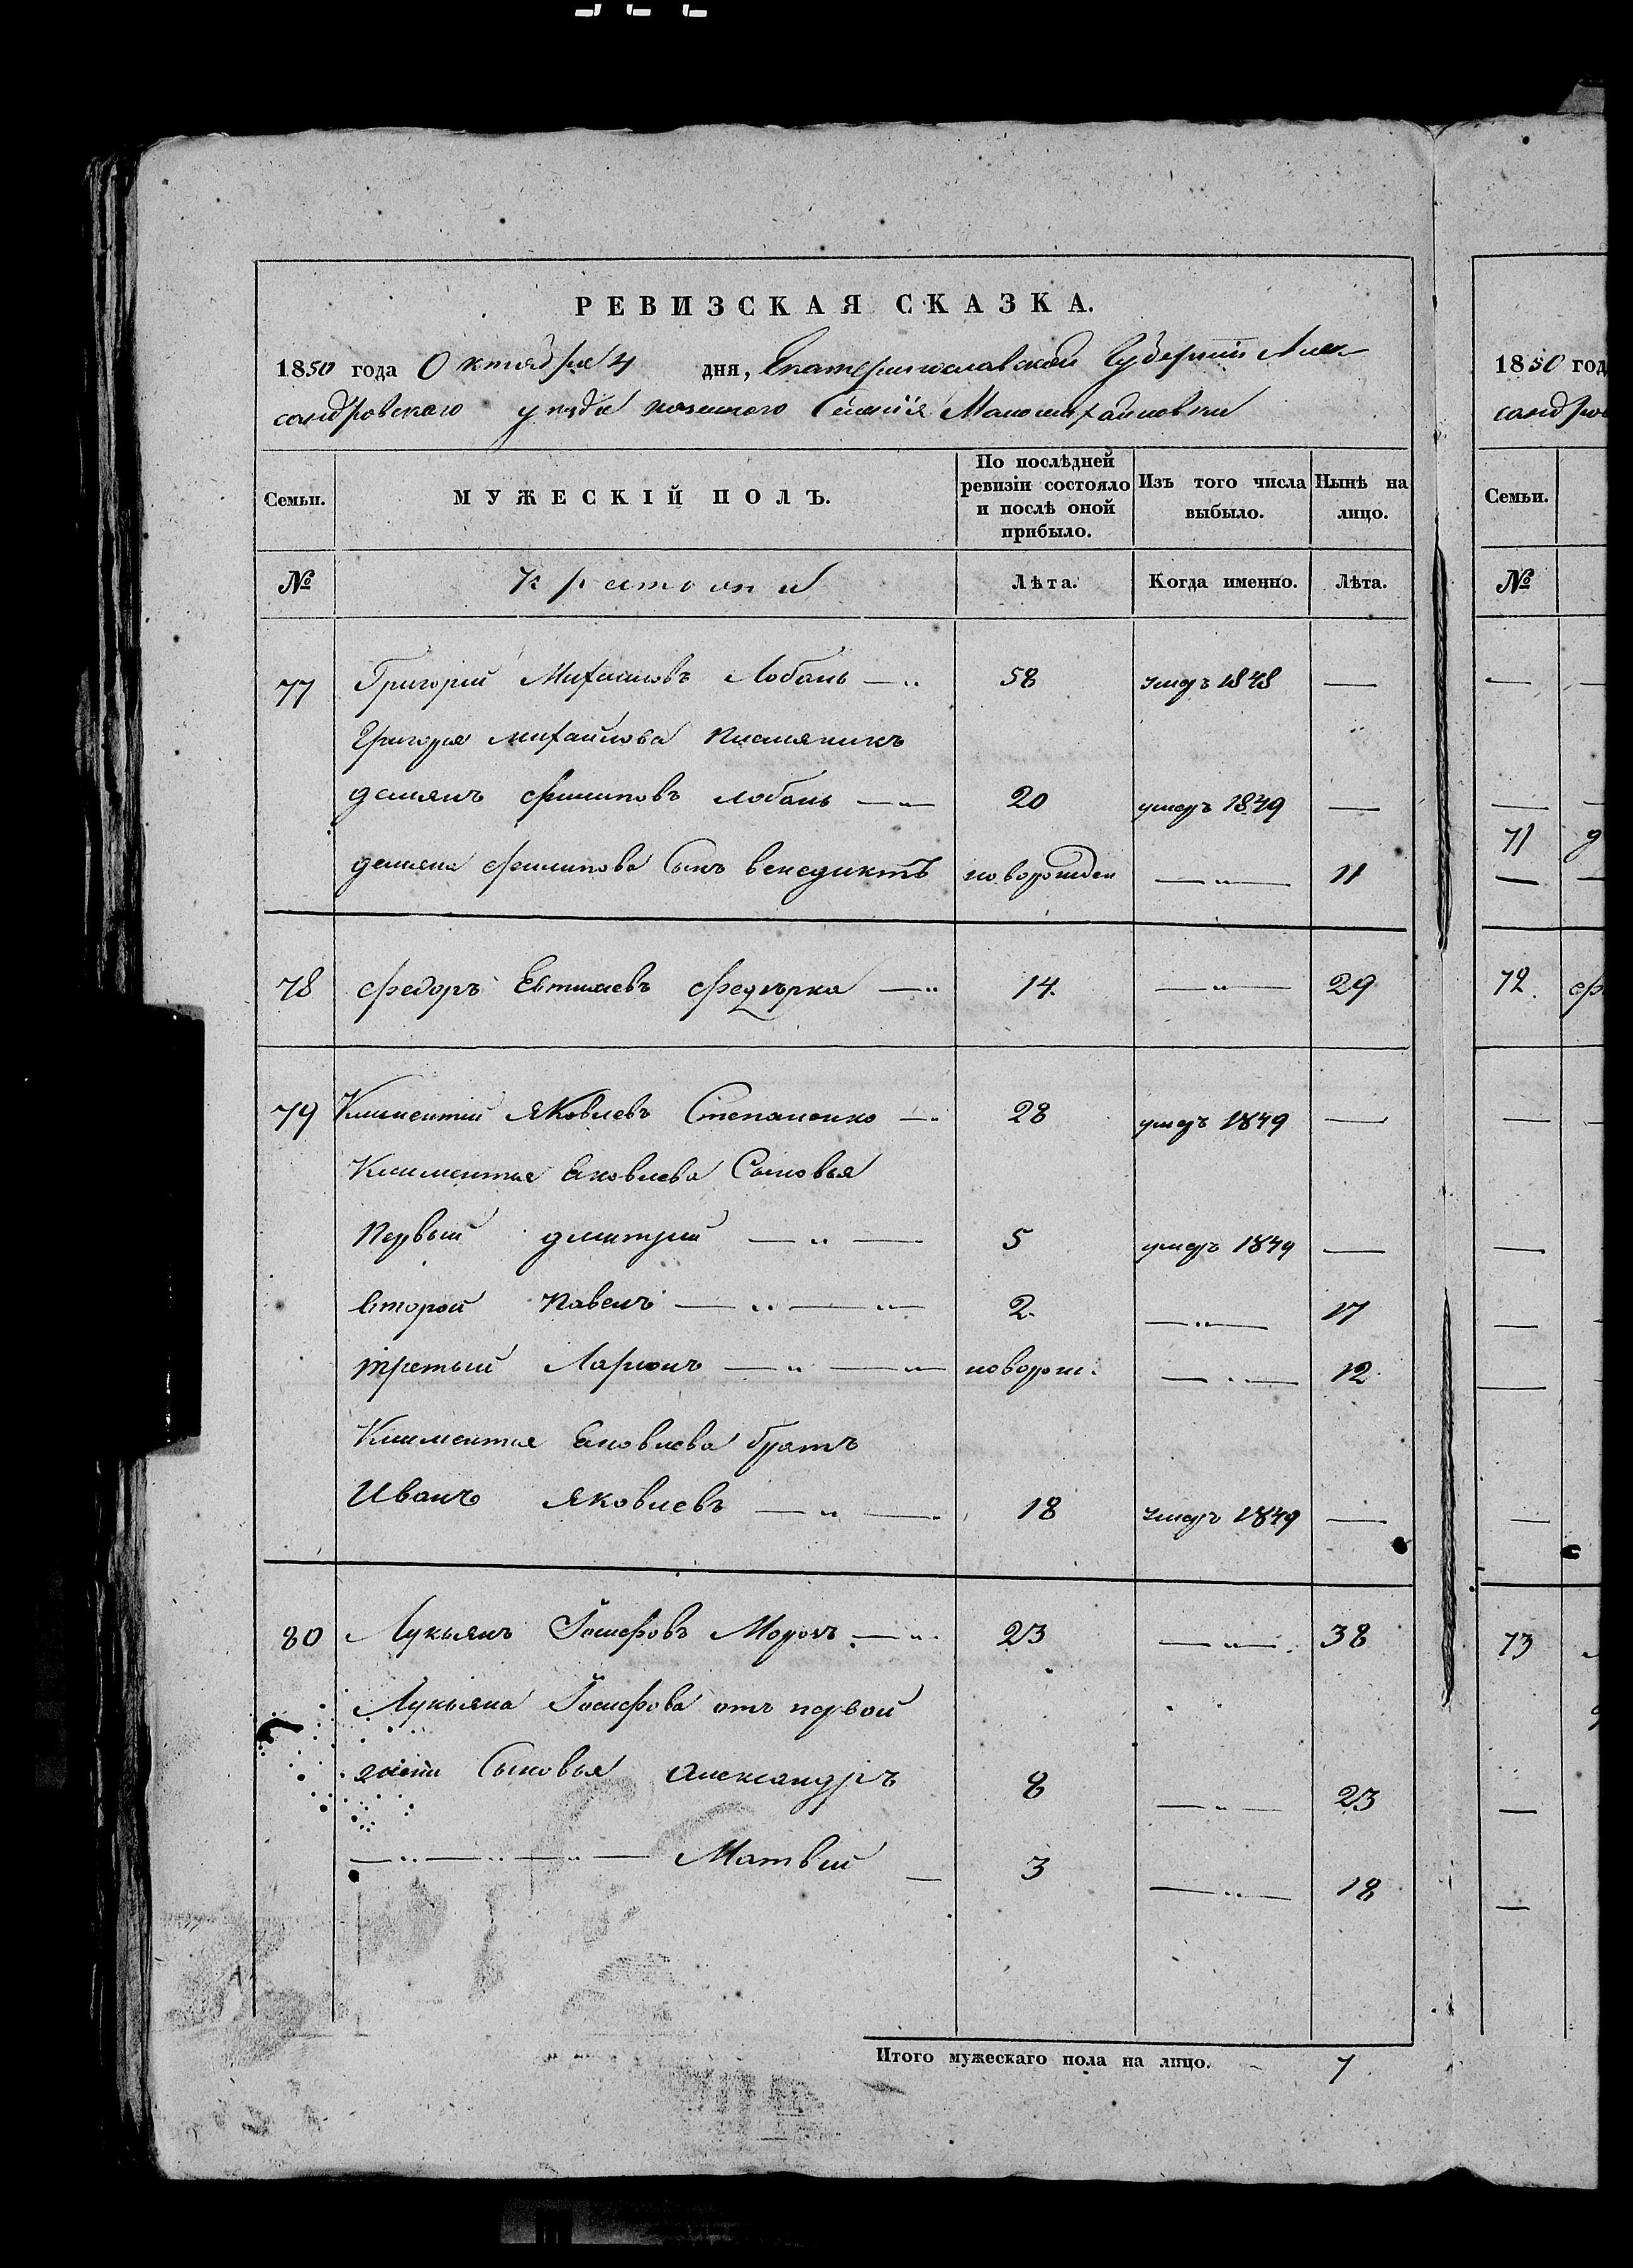 РЕВИЗСКАЯ СКАЗКА.
1850 года Октября 4 дня, Екатеринославской Губернии Алек
сандровского уезда казенного Селения Маломихайловки
Семьи. МУЖЕСКІЙ ПОЛЪ. По послѣдней ревизіи состояло и послѣ оной прибыло. Изъ того числа выбыло. Нынѣ на лицо.
№ Крестьяни Лѣта. Когда именно. Лѣта.
77 Григорій Михайловъ Лобань — 58 умеръ 1848 —
Григорія михайлова племяникъ
демянъ филиповъ лобань — 20 умеръ 1849 —
демяна филипова Сынъ венедиктъ новорожден — 11
78 федоръ Евтиховъ — 14. — 29
79 Климентій Яковлевъ Степаненко — 28 умеръ 1849 —
Климентія Яковлева Сыновья
Первый дмитрий — 5 умеръ 1849 —
второй Павелъ — 2. — 17
третый Ларионъ — новорож. — 12
Климентия Яковлева братъ
Иванъ Яковлевъ — 18 умеръ 1849 —
80 Лукьянъ Іосифовъ Морозъ — 23 — 38
Лукьяна Іосифова отъ первой
жены Сыновья Александръ 8 — 23
— Матвей — 3 — 18
Итого мужескаго пола на лицо. 7
1850 год
сандров
Семьи.
№
71 д
72. ф
73